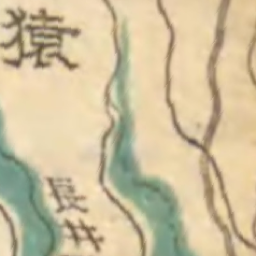 猿
長井